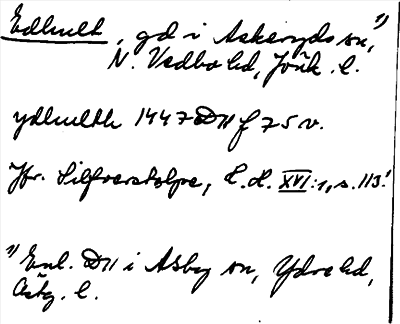 Edhult, gd i Askeryds sn,¹⁾
N. Vedbo hd, Jönk. l.
ydhulth 1447 DH f 75 v.
Jfr. Silfverstolpe, H. H. XVI:1, s. 113.
¹⁾ Enl. DH i Asby sn, Ydre hd,
Östg. l.